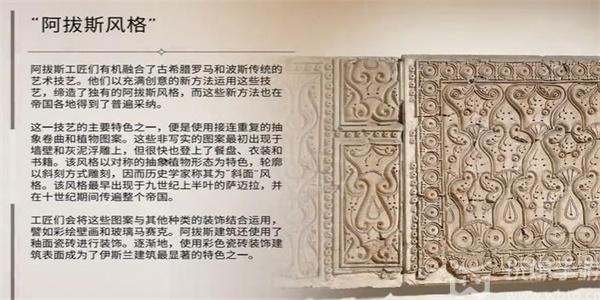 “阿拔斯风格”
阿拔斯工匠们有机融合了古希腊罗马和波斯传统的
艺术技艺。他们以充满创意的新方法运用这些技
艺，缔造了独有的阿拔斯风格，而这些新方法也在
帝国各地得到了普遍采纳。
这一技艺的主要特色之一，便是使用接连重复的抽
象卷曲和植物图案。这些非写实的图案最初出现于
墙壁和灰泥浮雕上，但很快也登上了餐盘、衣装和
书籍。该风格以对称的抽象植物形态为特色，轮廓
以斜刻方式雕刻，因而历史学家称其为“斜面”风
格。该风格最早出现于九世纪上半叶的萨迈拉，并
在十世纪期间传遍整个帝国。
工匠们会将这些图案与其他种类的装饰结合运用，
譬如彩绘壁画和玻璃马赛克。阿拔斯建筑还使用了
釉面瓷砖进行装饰。逐渐地，使用彩色瓷砖装饰建
筑表面成为了伊斯兰建筑最显著的特色之一。